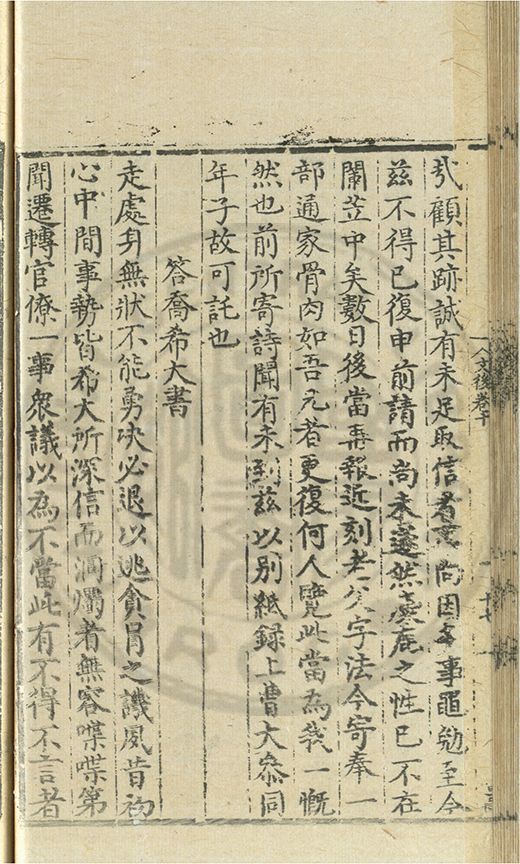 文後卷十
十七
顧其跡誠有未足取信者尚因多事黽勉至今
茲不得已復申前請而尚未遂然麋鹿之性已不在
闌苙中矣數日後當再報近刻老父字法今寄奉一
部通家骨肉如吾元者更復何人覽此當為我一慨
然也前所寄詩聞有未到茲以別紙録上曹大參同
年子故可託也
答喬希大書
走處身無狀不能勇决必退以逃貪冒之譏夙昔初
心中間事勢皆希大所深信而洞燭者無容喋喋第
聞遷轉官僚一事衆議以為不當此有不得不言者